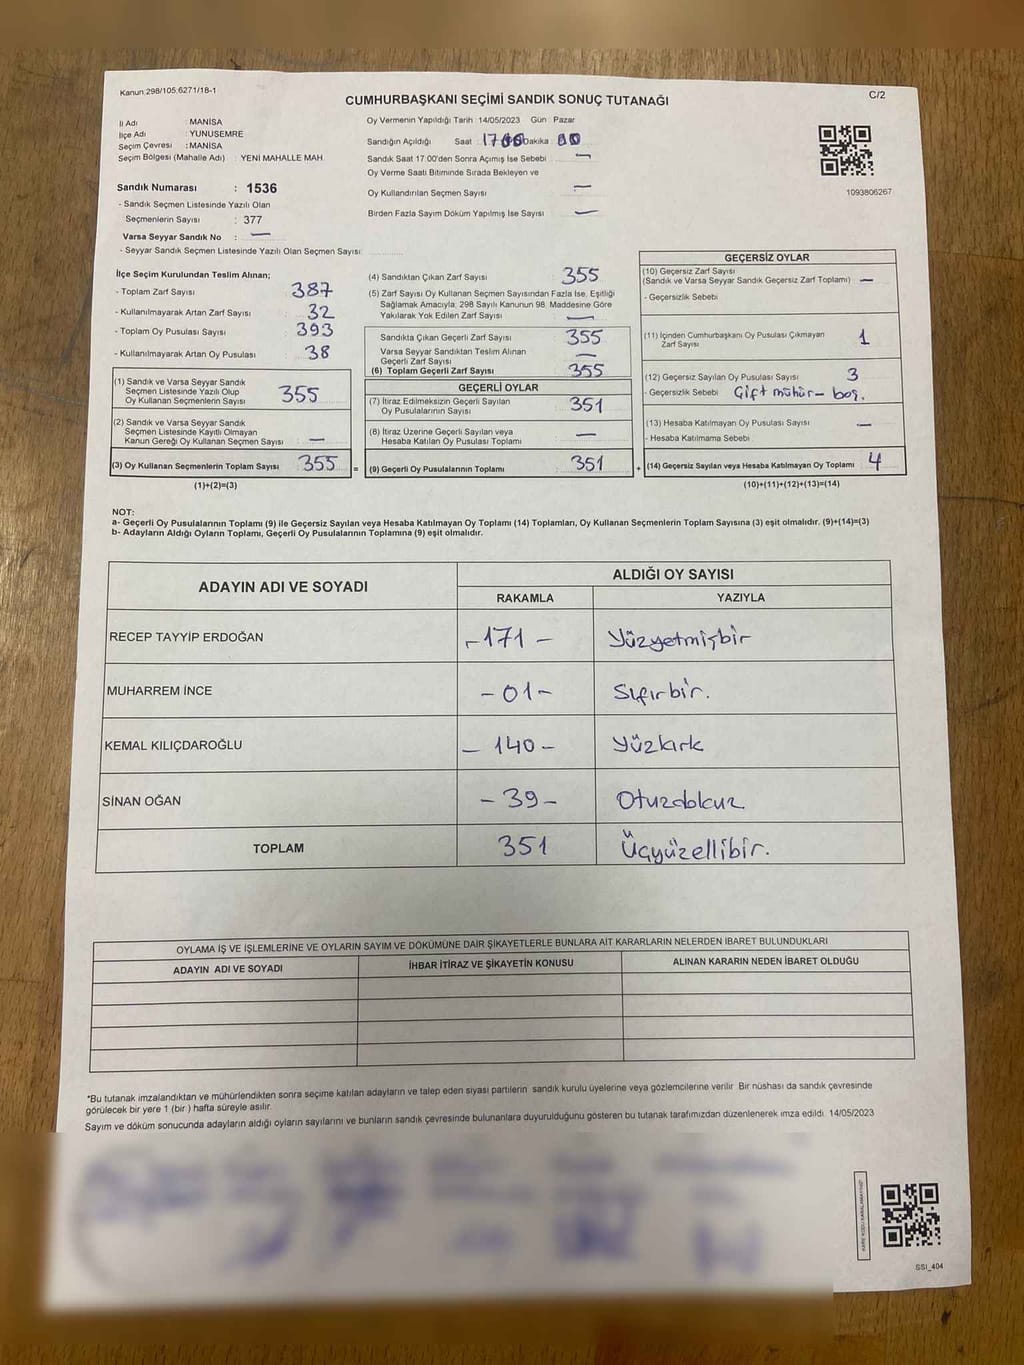 Kanun:298/105;6271/18-1
C/2
CUMHURBAŞKANI SEÇİMİ SANDIK SONUÇ TUTANAĞI
İl Adı : MANİSA
İlçe Adı : YUNUSEMRE
Seçim Çevresi : MANİSA
Seçim Bölgesi (Mahalle Adı) : YENİ MAHALLE MAH.
Sandık Numarası : 1536
- Sandık Seçmen Listesinde Yazılı Olan
Seçmenlerin Sayısı : 377
Varsa Seyyar Sandık No : —
- Seyyar Sandık Seçmen Listesinde Yazılı Olan Seçmen Sayısı:
Oy Vermenin Yapıldığı Tarih :14/05/2023 Gün : Pazar
Sandığın Açıldığı Saat : 17:00 Dakika : 00
Sandık Saat 17:00'den Sonra Açımış İse Sebebi : —
Oy Verme Saati Bitiminde Sırada Bekleyen ve
Oy Kullandırılan Seçmen Sayısı : —
Birden Fazla Sayım Döküm Yapılmış İse Sayısı : —
1093806267
İlçe Seçim Kurulundan Teslim Alınan;
- Toplam Zarf Sayısı : 387
- Kullanılmayarak Artan Zarf Sayısı : 32
- Toplam Oy Pusulası Sayısı : 393
- Kullanılmayarak Artan Oy Pusulası : 38
(1) Sandık ve Varsa Seyyar Sandık
Seçmen Listesinde Yazılı Olup
Oy Kullanan Seçmenlerin Sayısı : 355
(2) Sandık ve Varsa Seyyar Sandık
Seçmen Listesinde Kayıtlı Olmayan
Kanun Gereği Oy Kullanan Seçmen Sayısı : —
(3) Oy Kullanan Seçmenlerin Toplam Sayısı : 355
(1)+(2)=(3)
(4) Sandıktan Çıkan Zarf Sayısı : 355
(5) Zarf Sayısı Oy Kullanan Seçmen Sayısından Fazla İse, Eşitliği
Sağlamak Amacıyla, 298 Sayılı Kanunun 98. Maddesine Göre
Yakılarak Yok Edilen Zarf Sayısı : —
Sandıkta Çıkan Geçerli Zarf Sayısı : 355
Varsa Seyyar Sandıktan Teslim Alınan
Geçerli Zarf Sayısı : —
(6) Toplam Geçerli Zarf Sayısı : 355
GEÇERLİ OYLAR
(7) İtiraz Edilmeksizin Geçerli Sayılan
Oy Pusulalarının Sayısı : 351
(8) İtiraz Üzerine Geçerli Sayılan veya
Hesaba Katılan Oy Pusulası Toplamı : —
= (9) Geçerli Oy Pusulalarının Toplamı : 351
GEÇERSİZ OYLAR
(10) Geçersiz Zarf Sayısı
(Sandık ve Varsa Seyyar Sandık Geçersiz Zarf Toplamı) : —
- Geçersizlik Sebebi :
(11) İçinden Cumhurbaşkanı Oy Pusulası Çıkmayan
Zarf Sayısı : 1
(12) Geçersiz Sayılan Oy Pusulası Sayısı : 3
- Geçersizlik Sebebi : Çift mühür – boş.
(13) Hesaba Katılmayan Oy Pusulası Sayısı : —
- Hesaba Katılmama Sebebi :
+ (14) Geçersiz Sayılan veya Hesaba Katılmayan Oy Toplamı : 4
(10)+(11)+(12)+(13)=(14)
NOT:
a- Geçerli Oy Pusulalarının Toplamı (9) ile Geçersiz Sayılan veya Hesaba Katılmayan Oy Toplamı (14) Toplamları, Oy Kullanan Seçmenlerin Toplam Sayısına (3) eşit olmalıdır. (9)+(14)=(3)
b- Adayların Aldığı Oyların Toplamı, Geçerli Oy Pusulalarının Toplamına (9) eşit olmalıdır.
ADAYIN ADI VE SOYADI ALDIĞI OY SAYISI
RAKAMLA YAZIYLA
RECEP TAYYİP ERDOĞAN -171- Yüzyetmişbir
MUHARREM İNCE -01- Sıfırbir.
KEMAL KILIÇDAROĞLU -140- Yüzkırk
SİNAN OĞAN -39- Otuzdokuz
TOPLAM 351 Üçyüzellibir.
OYLAMA İŞ VE İŞLEMLERİNE VE OYLARIN SAYIM VE DÖKÜMÜNE DAİR ŞİKAYETLERLE BUNLARA AİT KARARLARIN NELERDEN İBARET BULUNDUKLARI
ADAYIN ADI VE SOYADI İHBAR İTİRAZ VE ŞİKAYETİN KONUSU ALINAN KARARIN NEDEN İBARET OLDUĞU
*Bu tutanak imzalandıktan ve mühürlendikten sonra seçime katılan adayların ve talep eden siyasi partilerin sandık kurulu üyelerine veya gözlemcilerine verilir. Bir nüshası da sandık çevresinde
görülecek bir yere 1 (bir) hafta süreyle asılır.
Sayım ve döküm sonucunda adayların aldığı oyların sayılarını ve bunların sandık çevresinde bulunanlara duyurulduğunu gösteren bu tutanak tarafımızdan düzenlenerek imza edildi. 14/05/2023
KARE KODU KARALAMAYINIZ!
SSI_404